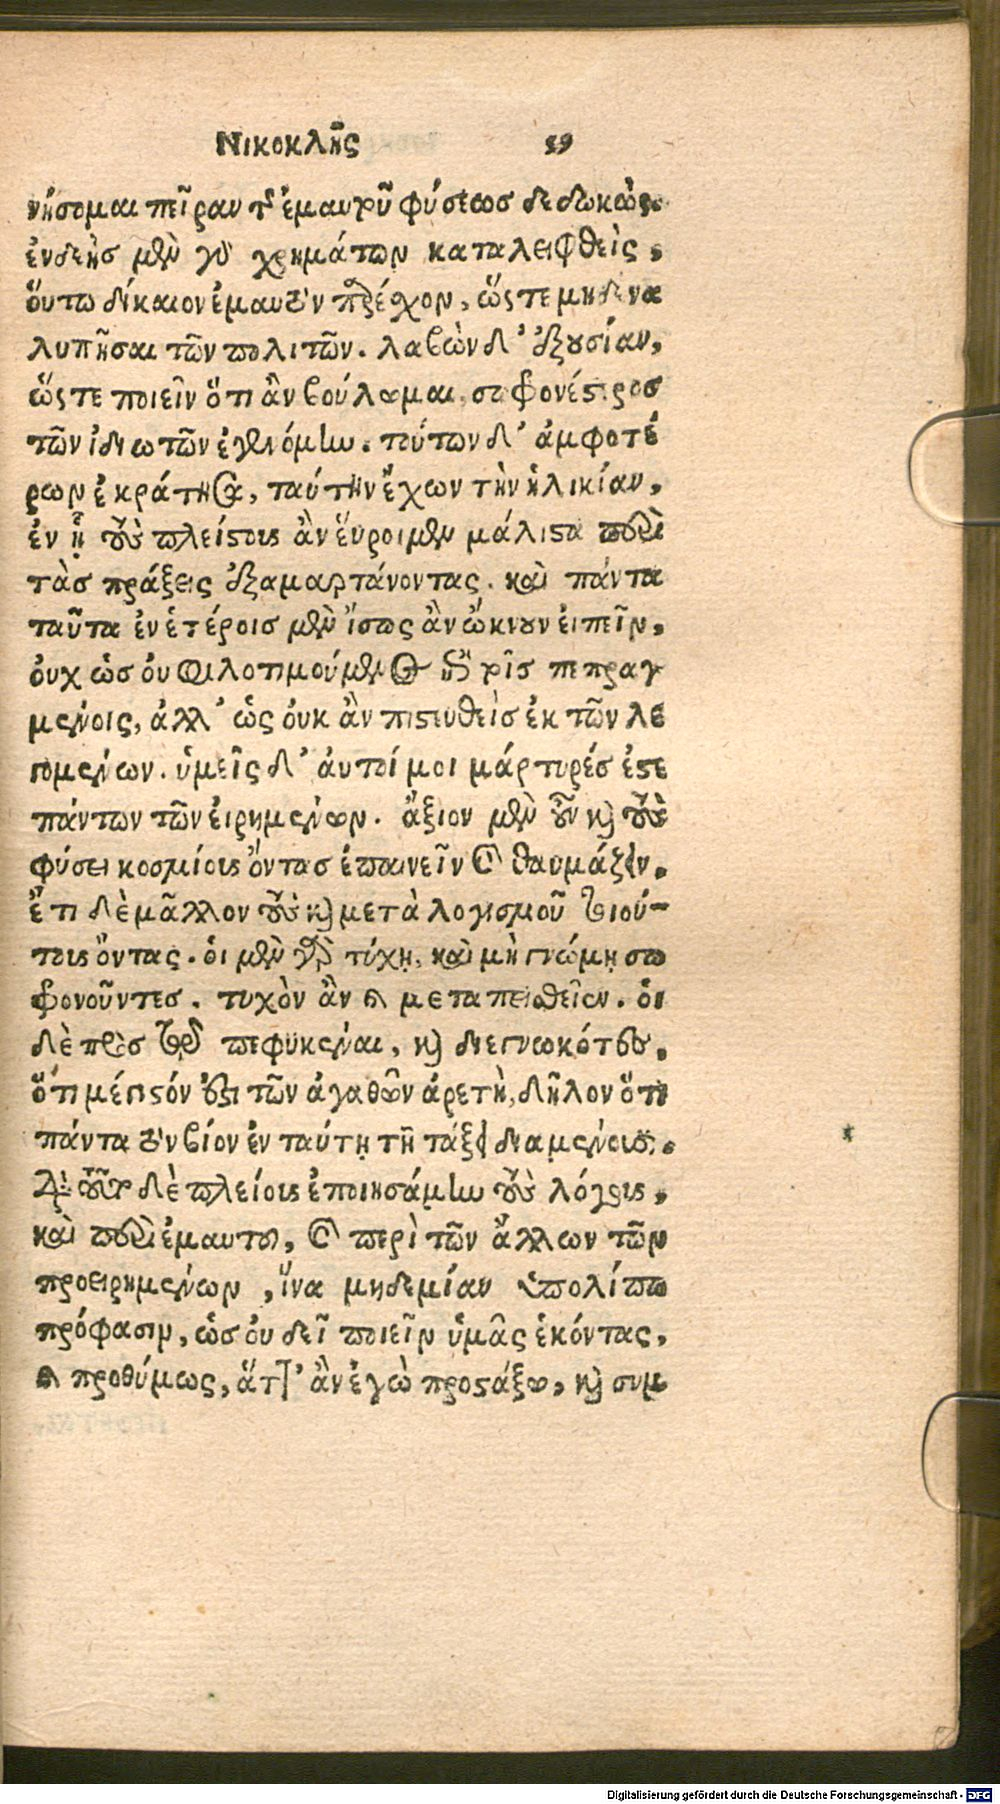 Νικοκλῆς 59
νήσομαι πεῖραν τῆς ἐμαυτοῦ φύσεως δεδωκώς.
ἐνδεὴς μὲν γὰρ χρημάτων καταλειφθεὶς,
ὅυτω δίκαιον ἐμαυτὸν παρέσχον, ὥςτε μηδένα
λυπῆσαι τῶν πολιτῶν. λαβὼν δ’ ἐξουσίαν,
ὥςτε ποιεῖν ὅτι ἂν βούλωμαι, σωφρονέστερος
τῶν ἰδιωτῶν ἐγενόμην. τούτων δ’ ἀμφοτέ
ρων ἐκράτησα, ταύτην ἔχων τὴν ἡλικίαν,
ἐν ᾗ τοὺς πλείστους ἂν ἕυροιμεν μάλιστα περὶ
τὰς πράξεις ἐξαμαρτάνοντας. καὶ πάντα
ταῦτα ἐν ἑτέροις μὲν ἴσως ἂν ὤκνουν ἐιπεῖν,
ὀυχ ὡς ὀυ φιλοτιμούμενος ἐπὶ τοῖς πεπραγ
μένοις, ἀλλ’ ὡς ὀυκ ἂν πιστευθεὶς ἐκ τῶν λε
γομένων. ὑμεῖς δ’ ἀυτοί μοι μάρτυρές ἐστε
πάντων τῶν ἐιρημένων. ἄξιον μὲν οὖν καὶ τοὺς
φύσει κοσμίους ὄντας ἐπαινεῖν καὶ θαυμάζειν.
ἔτι δὲ μᾶλλον τοὺς καὶ μετὰ λογισμοῦ τοιού-
τους ὄντας. ὁι μὲν γὰρ τύχῃ, καὶ μὴ γνώμῃ σω
φρονοῦντες. τυχὸν ἂν καὶ μεταπεισθεῖεν. ὁι
δὲ πρὸς τῷ πεφυκέναι, καὶ διεγνωκότες,
ὅτι μέγιστόν ἐστι τῶν ἀγαθῶν ἀρετὴ, δῆλον ὅτι
πάντα τὸν βίον ἐν ταύτῃ τῇ τάξει διαμένουσιν.
διὰ τοῦτο δὲ πλείους ἐποιησάμην τοὺς λόγους,
καὶ περὶ ἐμαυτοῦ, καὶ περὶ τῶν ἄλλων τῶν
προειρημένων, ἵνα μηδεμίαν ὑπολίπω
πρόφασιν, ὡς ὀυ δεῖ ποιεῖν ὑμᾶς ἑκόντας,
καὶ προθύμως, ἅττ’ ἂν ἐγὼ προστάξω, καὶ συμ
Digitalisierung gefördert durch die Deutsche Forschungsgemeinschaft - DFG